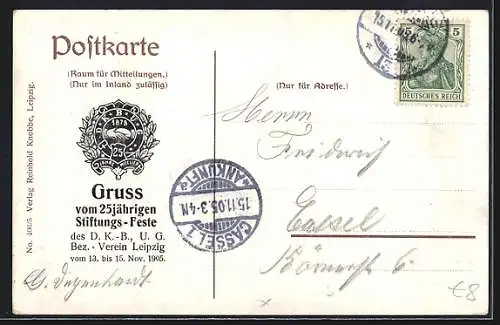 Postkarte
(Raum für Mitteilungen.)
(Nur im Inland zulässig)
(Nur für Adresse.)
15.11.05.
5
DEUTSCHES REICH
No. 4095 Verlag Reinhold Knobbe, Leipzig.
1879
25
Gruss
vom 25jährigen
Stiftungs-Feste
des D. K.-B., U. G.
Bez.-Verein Leipzig
vom 13. bis 15. Nov. 1905.
G. Degenhardt
Herrn
Friedrich
Cassel
Körnerstr 6
CASSEL 1
15.11.05.3-4N
*ANKUNFT*
€8